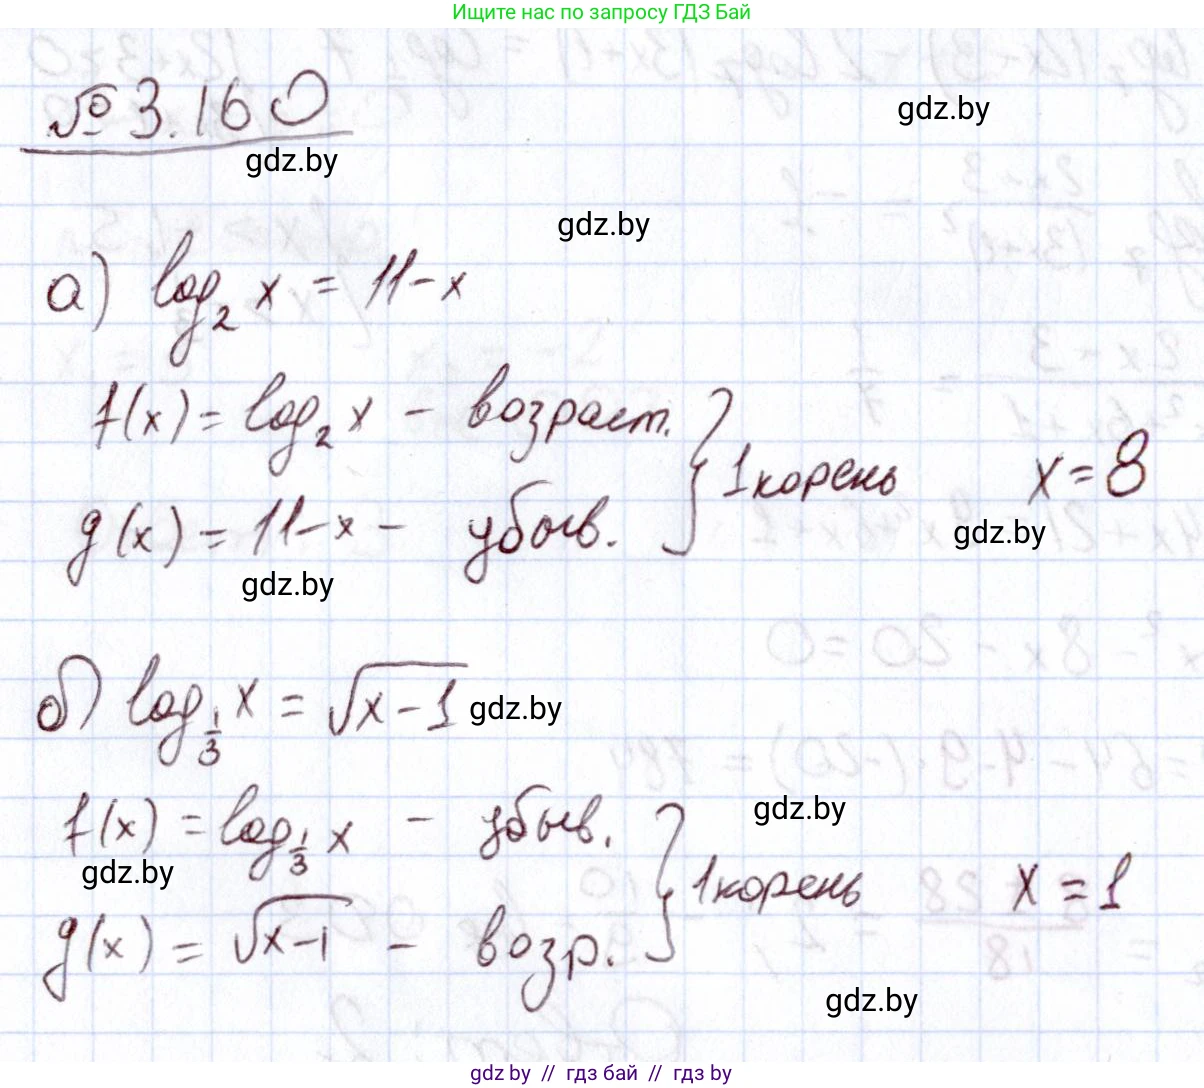 Ищите нас по запросу ГДЗ Бай
№ 3.160
gdz.by
gdz.by
gdz.by
а) log₂ x = 11 - x
f(x) = log₂ x - возраст.
g(x) = 11 - x - убыв.
} 1 корень x = 8
gdz.by
gdz.by
б) log_{1/3} x = √(x - 1)
gdz.by
f(x) = log_{1/3} x - убыв.
gdz.by
gdz.by
g(x) = √(x - 1) - возр.
} 1 корень x = 1
gdz.by
gdz by // гдз бай // гдз by